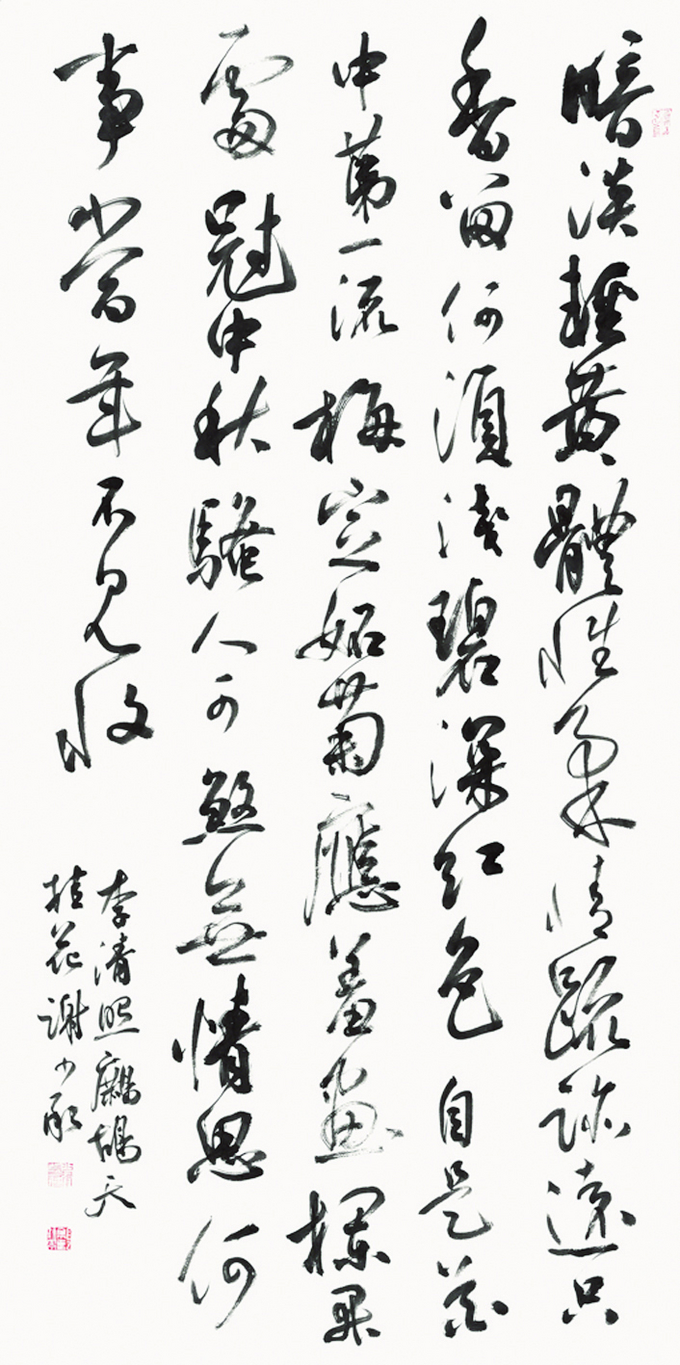 暗淡輕黃體性柔情疏跡遠只
香留何須淺碧深紅色自是花
中第一流梅定妬菊應羞畫欄開
處冠中秋騷人可煞無情思何
事當年不見收
李清照鷓鴣天
桂花謝少承